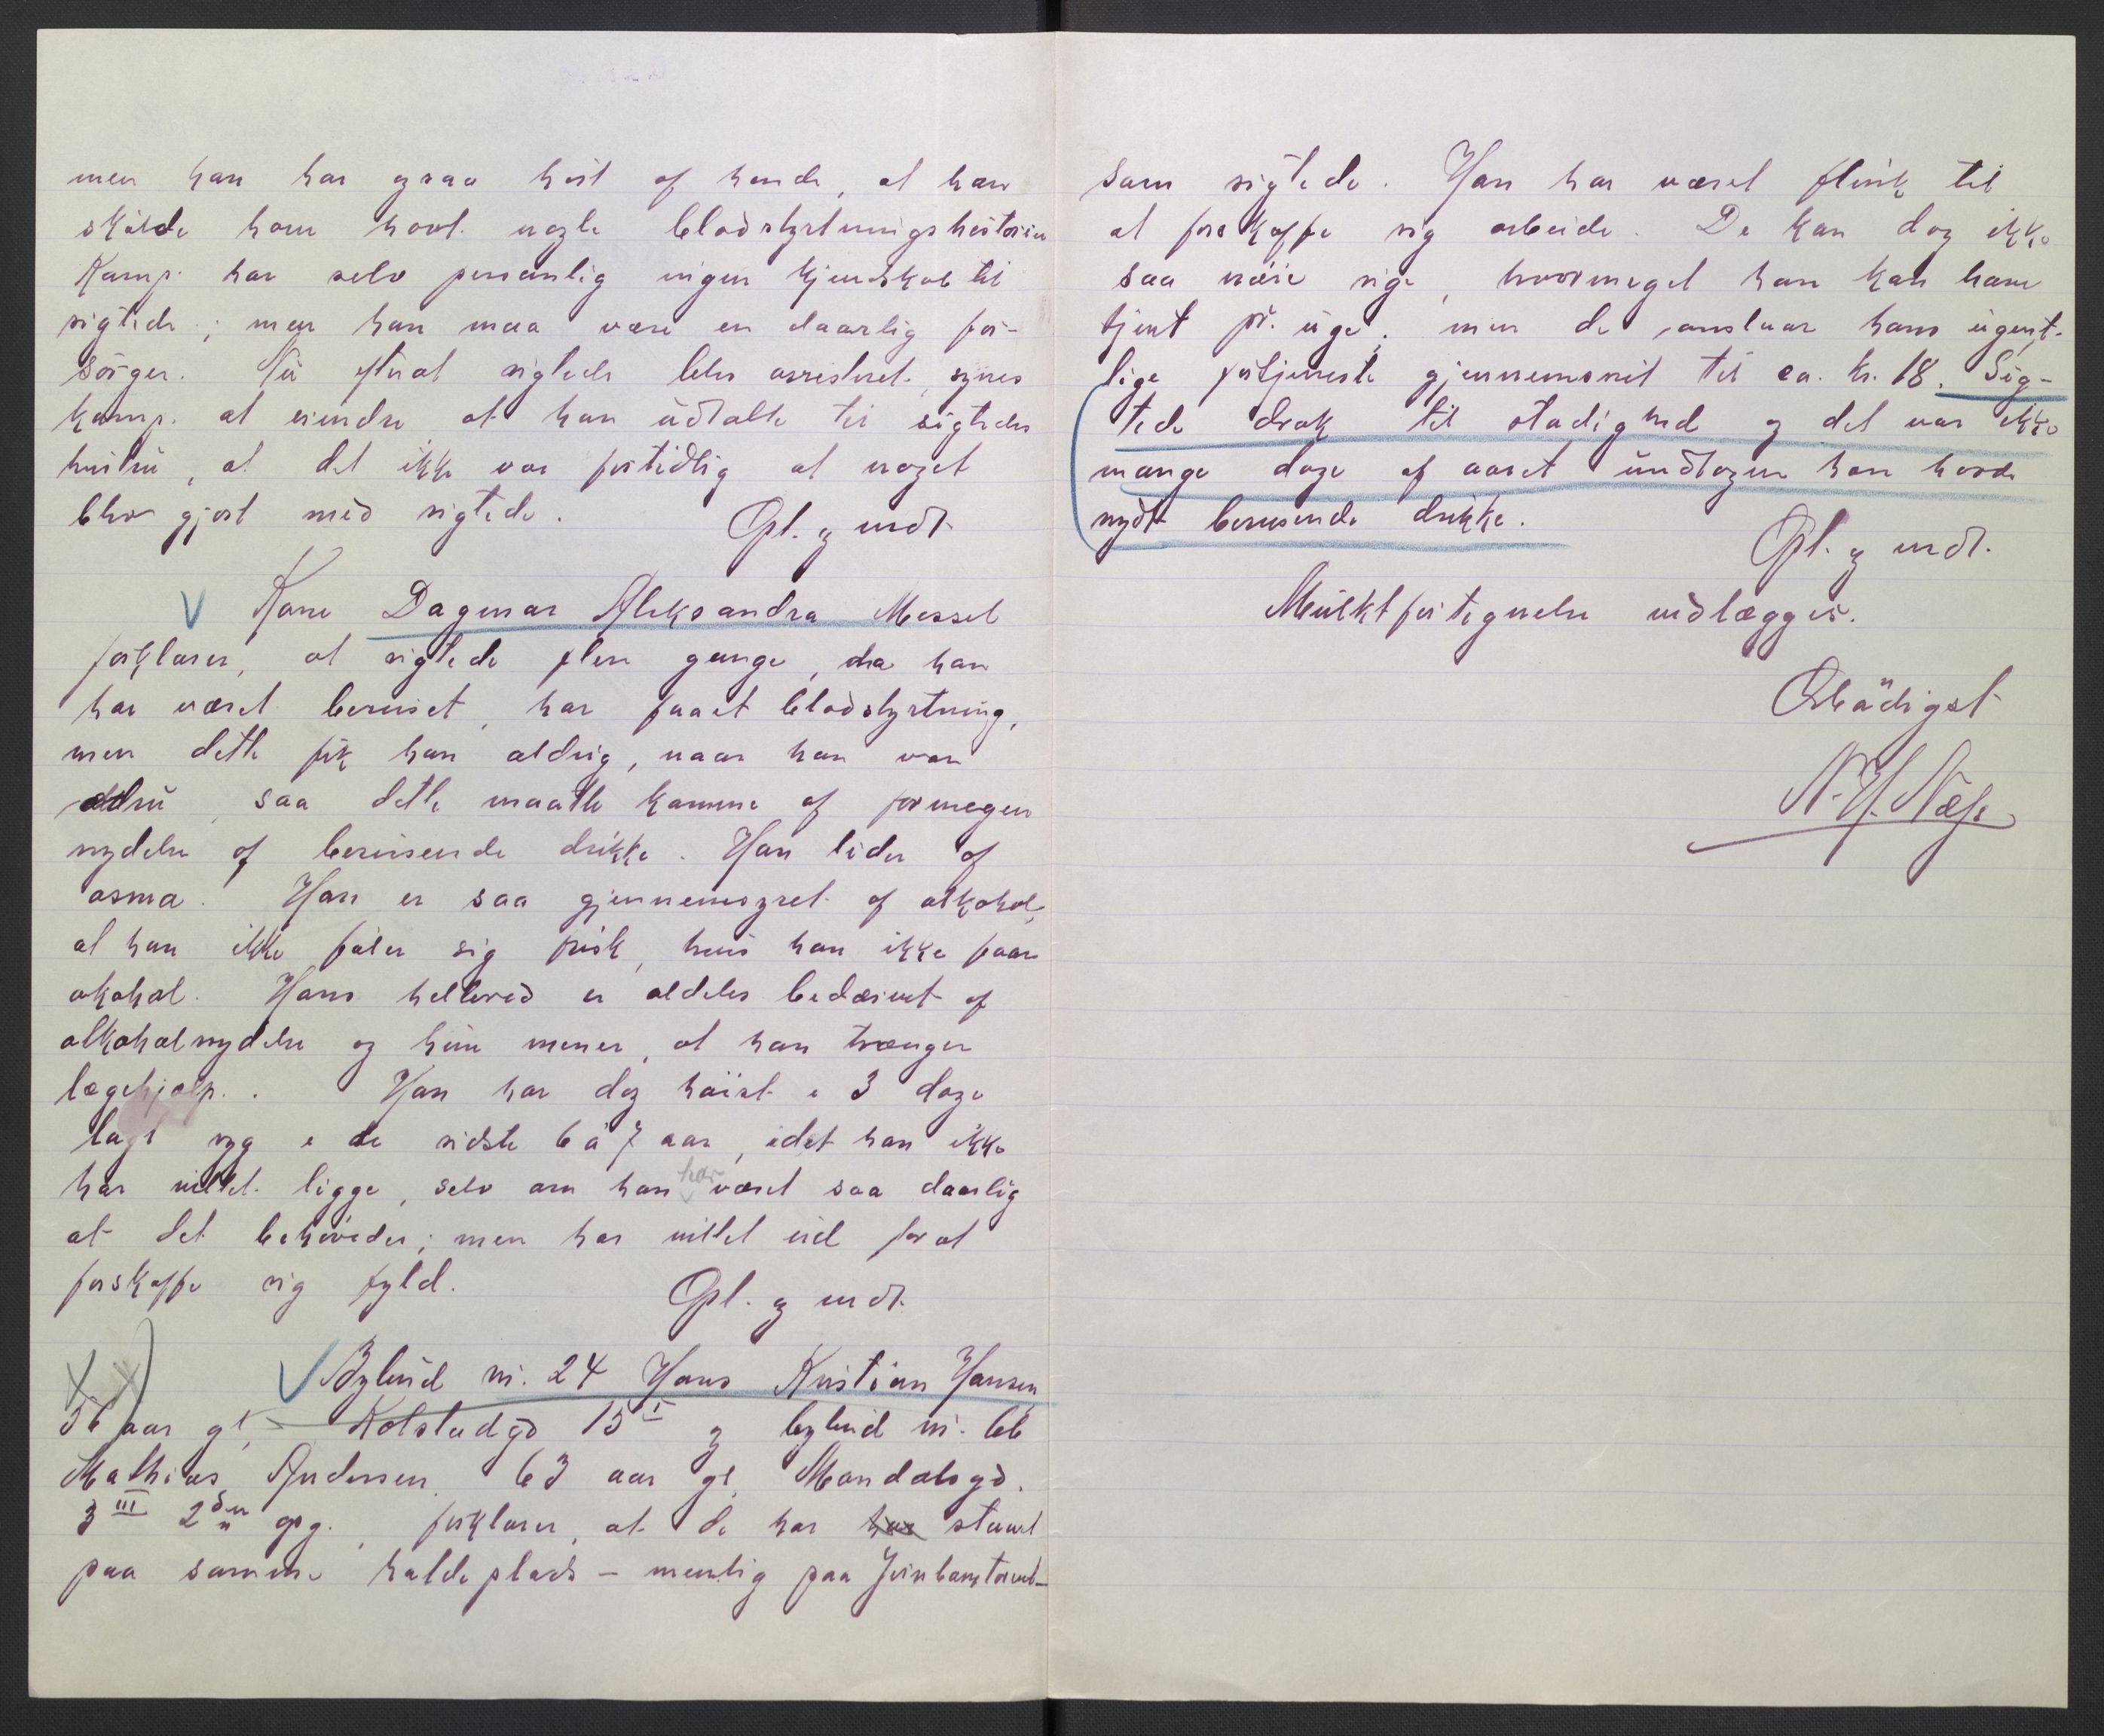 men han har ogsaa hørt af hende, at han
skulde ham hovt. nogle blodstyrtningshistorier
Komp. har selv personlig ingen kjendskab til
sigtede; men han maa være en daarlig for-
sørger. Nu efterat sigtede blev arresteret, synes
komp. at erindre at han udtalte til sigtedes
hustru, at det ikke var fortidlig at noget
blev gjort med sigtede.
Opl. og vedt.
Kone Dagmar Aleksandra Messel
forklarer, at sigtede flere gange, da han
har været beruset, har faaet blodstyrtning,
men dette fik han aldrig, naar han var
ædru, saa dette maatte komme af formegen
nydelse af berusende drikke. Han lider af
asma. Han er saa gjennemsyret af alkohol,
at han ikke føler sig frisk, hvis han ikke faar
akohol. Hans helbred er aldeles bedærvet af
alkoholnydelse og hun mener, at han trænger
lægehjælp. Han har dog høist i 3 dage
lagt syg i de sidste 6 à 7 aar, idet han ikke
har villet ligge, selv om han har været saa daarlig
at det behøvedes; men har villet ud for at
forskaffe sig fyld.
Opl. og vedt.
Bybud nr. 24 Hans Kristian Hansen
56 aar gl, Kolstadgd 15 I og bybud nr. 66
Mathias Andersen 63 aar gl, Mandalsgd.
3 III 2den opg., forklarer, at de har har staaet
paa samme holdeplads – nemlig paa Jernbanetorvet –
som sigtede. Han har været flink til
at forskaffe sig arbeide. De kan dog ikke
saa nøie sige, hvormeget han kan have
tjent pr. uge; men de anslaar hans ugent-
lige fortjeneste gjennemsnit til ca. kr. 18. Sig-
tede drak til stadighed og det var ikke
mange dage af aaret undtagen han havde
nydt berusende drikke.
Opl. og vedt.
Mulktfortegnelse vedlægges.
Ærbødigst
N. H. Næss